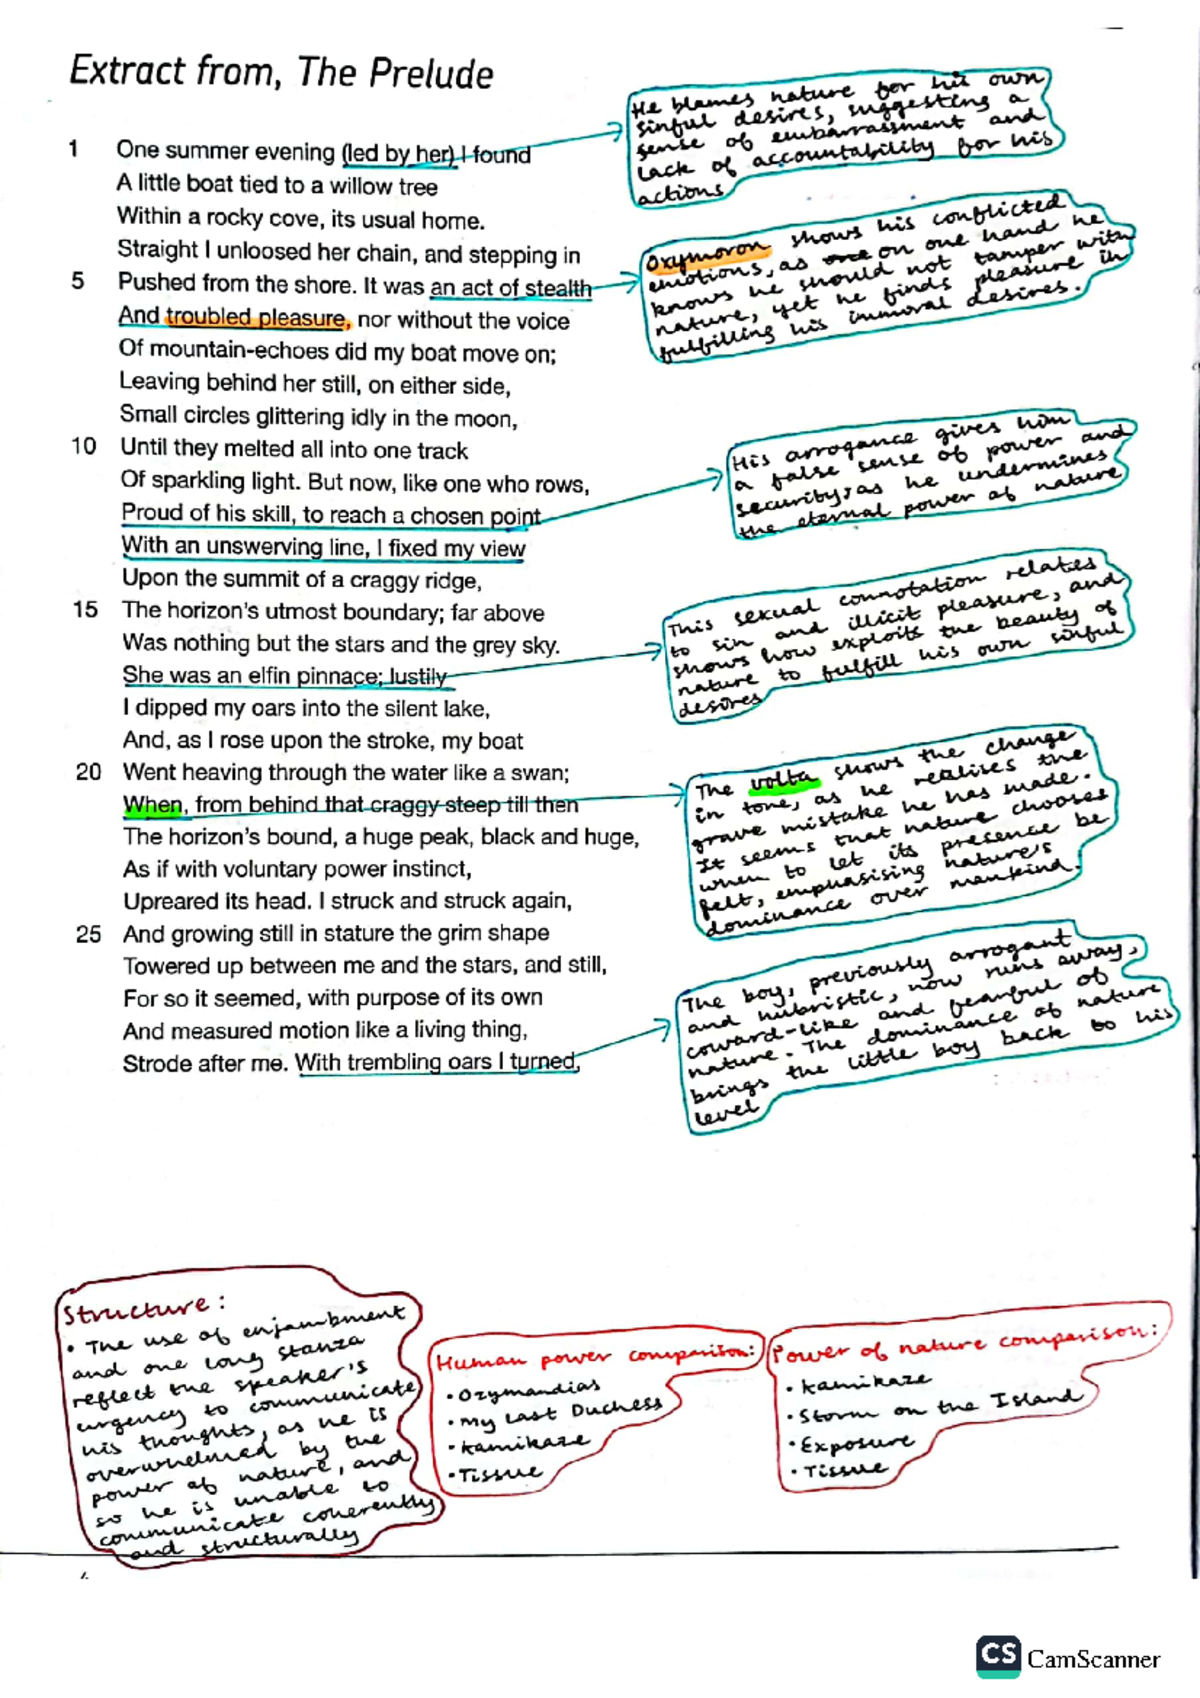 Extract from, The Prelude
1 One summer evening (led by her) I found
A little boat tied to a willow tree
Within a rocky cove, its usual home.
Straight I unloosed her chain, and stepping in
5 Pushed from the shore. It was an act of stealth
And troubled pleasure, nor without the voice
Of mountain-echoes did my boat move on;
Leaving behind her still, on either side,
Small circles glittering idly in the moon,
10 Until they melted all into one track
Of sparkling light. But now, like one who rows,
Proud of his skill, to reach a chosen point
With an unswerving line, I fixed my view
Upon the summit of a craggy ridge,
15 The horizon's utmost boundary; far above
Was nothing but the stars and the grey sky.
She was an elfin pinnace; lustily
I dipped my oars into the silent lake,
And, as I rose upon the stroke, my boat
20 Went heaving through the water like a swan;
When, from behind that craggy steep till then
The horizon's bound, a huge peak, black and huge,
As if with voluntary power instinct,
Upreared its head. I struck and struck again,
25 And growing still in stature the grim shape
Towered up between me and the stars, and still,
For so it seemed, with purpose of its own
And measured motion like a living thing,
Strode after me. With trembling oars I turned,
He blames nature for his own
sinful desires, suggesting a
sense of embarrassment and
lack of accountability for his
actions
Oxymoron shows his conflicted
emotions, as once on one hand he
knows he should not tamper with
nature, yet he finds pleasure in
fulfilling his immoral desires.
His arrogance gives him
a false sense of power and
security, as he undermines
the eternal power of nature
This sexual connotation relates
to sin and illicit pleasure, and
shows how exploits the beauty of
nature to fulfill his own sinful
desires
The volta shows the change
in tone, as he realises the
grave mistake he has made.
It seems that nature chooses
when to let its presence be
felt, emphasising nature's
dominance over mankind.
The boy, previously arrogant
and hubristic, now runs away,
coward-like and fearful of
nature. The dominance of nature
brings the little boy back to his
level
Structure:
• The use of enjambment
and one long stanza
reflect the speaker's
urgency to communicate
his thoughts, as he is
overwhelmed by the
power of nature, and
so he is unable to
communicate coherently
and structurally
Human power comparison:
• Ozymandias
• My Last Duchess
• Kamikaze
• Tissue
Power of nature comparison:
• Kamikaze
• Storm on the Island
• Exposure
• Tissue
CS CamScanner